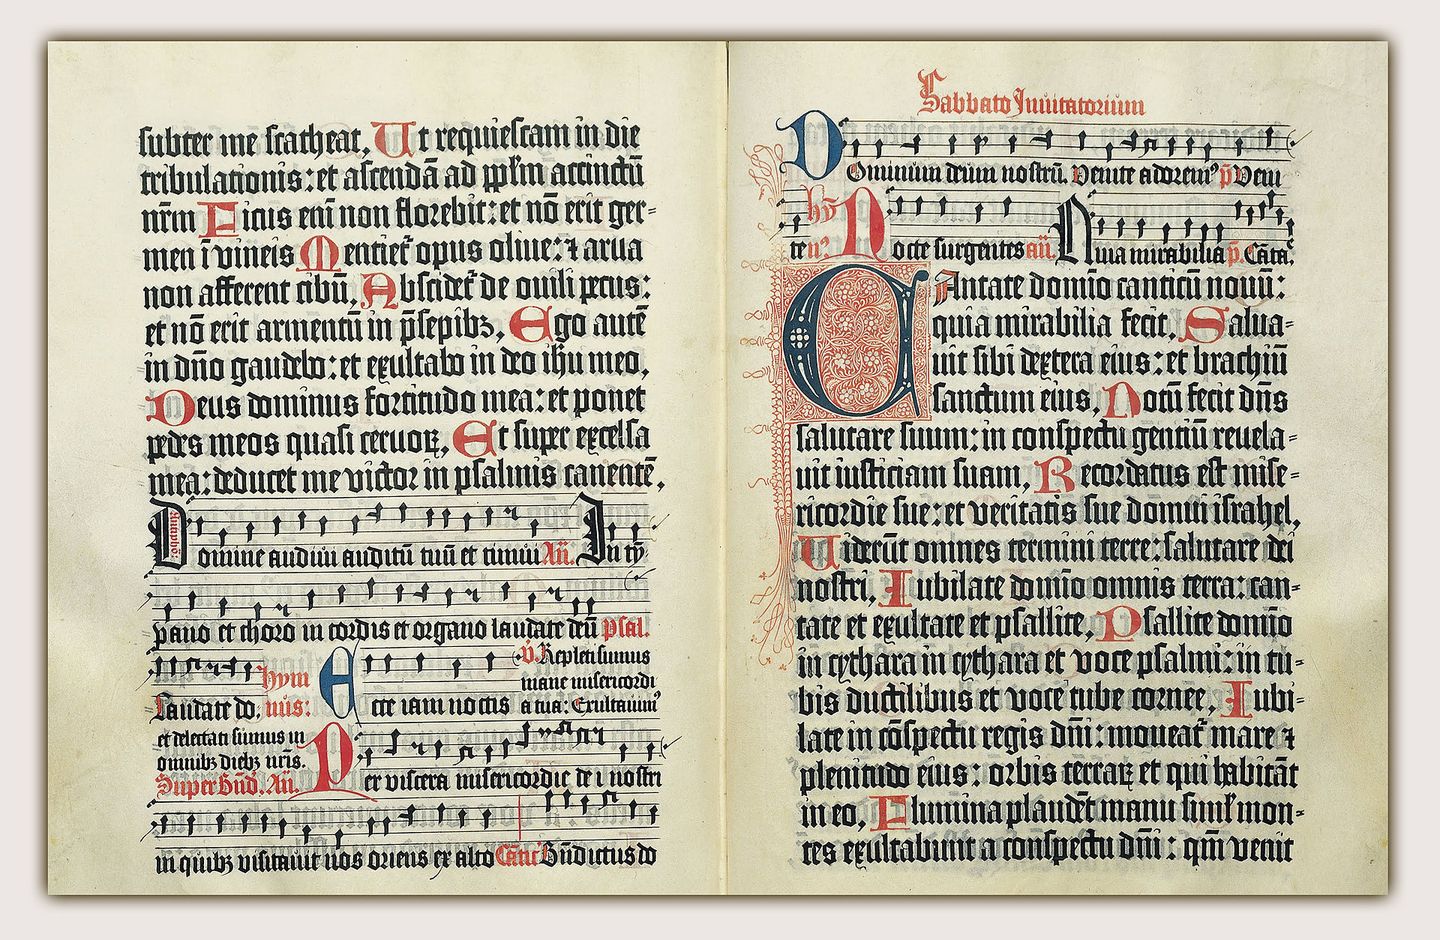 subter me scatheat, Ut requiescam in die
tribulationis: et ascendā ad pplm accinctū
nr̄m Ficus eni non florebit: et nō erit ger=
men ī vineis Mentiet᷑ opus olive: ⁊ arua
non afferent cibū, Abscidet᷑ de ouili pecus:
et nō erit armentū in p̄sepibꝫ, Ego autē
in dn̄o gaudebo: et exultabo in deo ihū meo,
Deus dominus fortitudo mea: et ponet
pedes meos quasi ceruoꝝ, Et super excelsa
mea: deducet me victor in psalmis canentē,
Antiphō:
Domine audiui auditū tuū et timui Añ. In tȳ
pano et choro in cordis et organo laudate deū Psal.
Laudate do. hym
nus: Ecce iam noctis
ꝟ. Repleti sumus
mane misericordi
a tua: Exultauimꝰ
et delectati sumus in
omnibꝫ diebꝫ nr̄is.
Super Bn̄d. Añ. Per viscera misericordie dei nostri
in quibꝫ visitauit nos oriens ex alto Cātic Bn̄dictus do
Sabbato Inuitatorium
Dominum deum nostrū. Venite adoremꝰ p̄ Veni
te hȳ
nꝰ Nocte surgentes añ. Quia mirabilia p̄. Cāta,
CAntate domīo canticū nouū:
quia mirabilia fecit, Salua=
uit sibi dextera eius: et brachiū
sanctum eius, Notū fecit dn̄s
salutare suum: in conspectu gentiū reuela=
uit iusticiam suam, Recordatus est mise=
ricordie sue: et veritatis sue domui israhel,
Uiderūt omnes termini terre: salutare dei
nostri, Iubilate domīo omnis terra: can=
tate et exultate et psallite, Psallite domīo
in cythara in cythara et voce psalmi: in tu=
bis ductilibus et voce tube cornee, Iubi=
late in cōspectu regis dn̄i: moueat᷑ mare ⁊
plenitudo eius: orbis terraꝝ et qui habitāt
in eo, Flumina plaudēt manu simł mon=
tes exultabunt a conspectu dn̄i: qm̄ venit